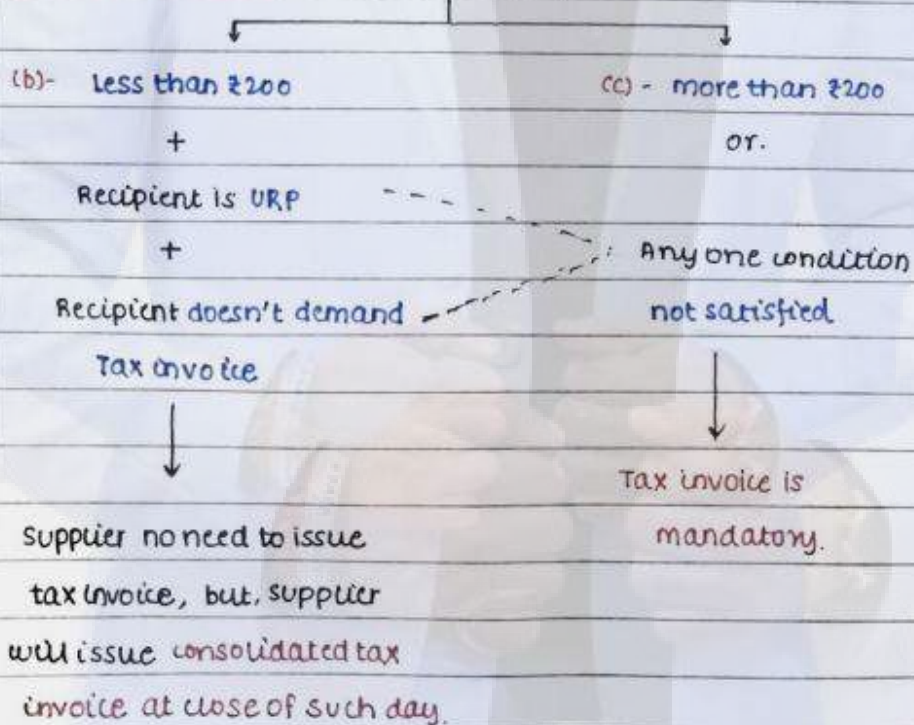 (b)- Less than ₹200
+
Recipient is URP
+
Recipient doesn't demand
Tax invoice
Supplier no need to issue
tax invoice, but, supplier
will issue consolidated tax
invoice at close of such day.
(c) - more than ₹200
or.
Any one condition
not satisfied
Tax invoice is
mandatory.